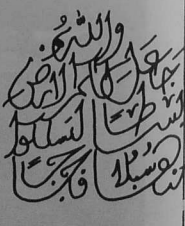 والله
جعل لكم الارض
بساطًا لتسلكوا
منها سُبُلًا فجاجًا